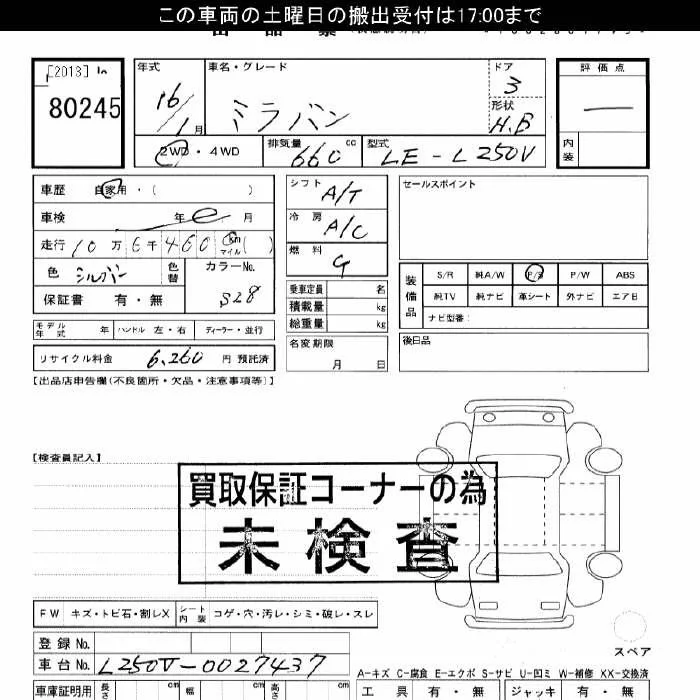 この車両の土曜日の搬出受付は17:00まで
[2013] In
80245
年式
16/1月
車名・グレード
ミラバン
ドア
3
形状
H.B
評価点
—
内装
2WD・4WD
排気量 660 cc
型式 LE-L250V
車歴 自家用・( )
車検 年 月
走行 10万6千460 km マイル( )
色 シルバー 色替
カラーNo. S28
保証書 有・無
シフト A/T
冷房 A/C
燃料 G
乗車定員 名
積載量 kg
総重量 kg
名変期限
月 日
セールスポイント
装備品
S/R 純A/W P/S P/W ABS
純TV 純ナビ 革シート 外ナビ エアB
ナビ型番:
後日品
モデル年式 年 ハンドル 左・右 ディーラー・並行
リサイクル料金 6,260 円 預託済
【出品店申告欄(不良箇所・欠品・注意事項等)】
【検査員記入】
買取保証コーナーの為
未検査
FW キズ・トビ石・割レX シート内装 コゲ・穴・汚レ・シミ・破レ・スレ
スペア
登録No.
車台No. L250V-0027437
A-キズ C-腐食 E-エクボ S-サビ U-凹ミ W-補修 XX-交換済
車庫証明用 長さ cm 幅 cm 高さ cm
工具 有・無 ジャッキ 有・無